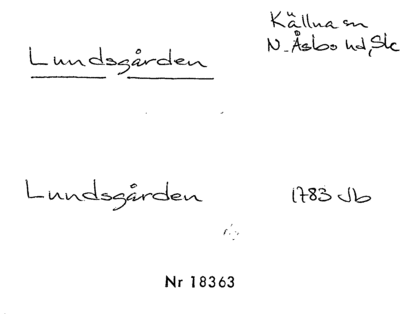 Källna sn
Lundsgården
N. Åsbo hd, Sk
Lundsgården 1783 Jb
Nr 18363